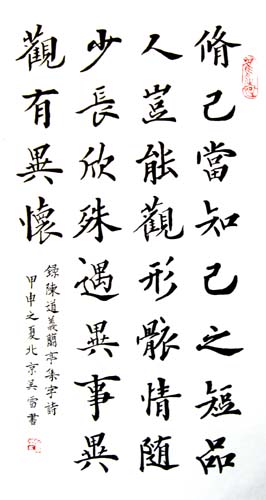 脩己當知己之短品
人豈能觀形骸情随
少長欣殊遇異事異
觀有異懷
録陳道義蘭亭集字詩
甲申之夏北京吴雪書